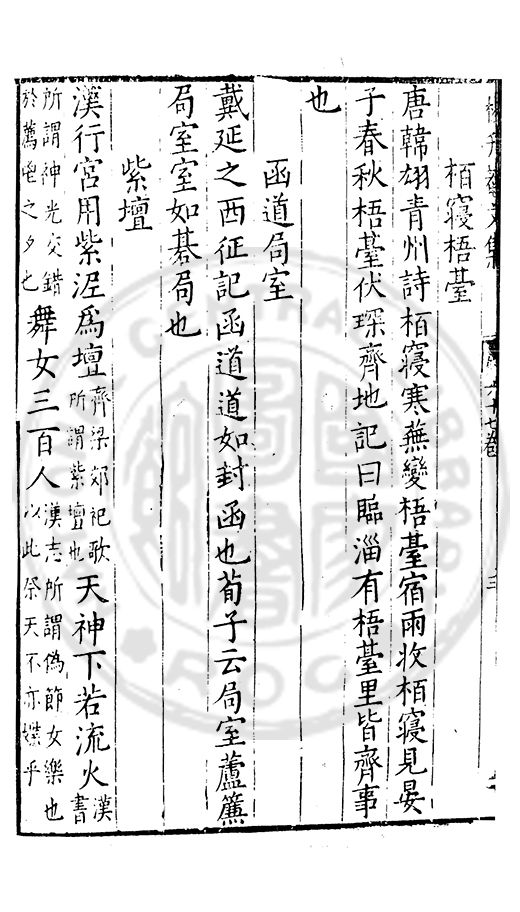 升菴文集 六十七卷 三
栢寢梧臺
唐韓翃青州詩栢寢寒蕪變梧臺宿雨收栢寢見晏
子春秋梧臺伏琛齊地記曰臨淄有梧臺里皆齊事
也
函道局室
戴延之西征記函道道如封函也荀子云局室蘆簾
局室室如碁局也
紫壇
漢行宮用紫泥爲壇齊梁郊祀歌所謂紫壇也天神下若流火漢書
所謂神光交錯於薦之夕也舞女三百人漢志所謂偽節女樂也以此祭天不亦媟乎